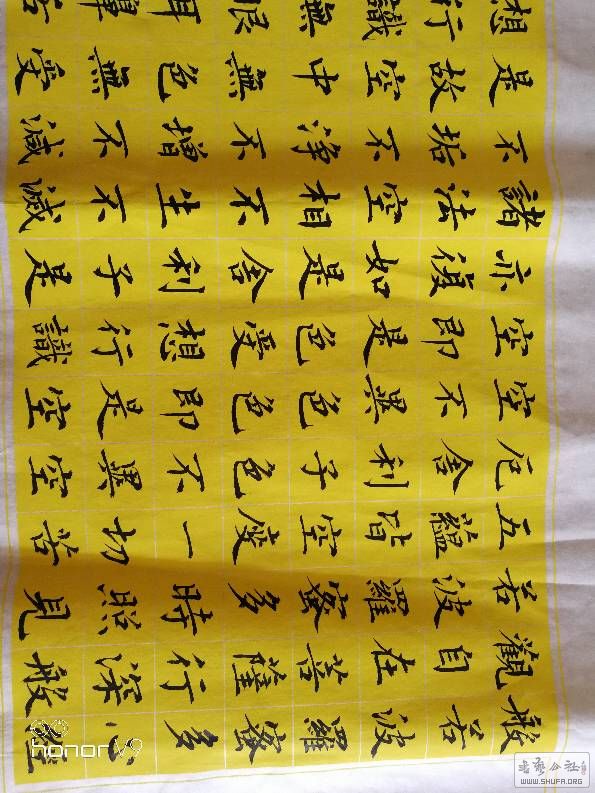 般若波羅蜜多心經
觀自在菩薩行深般
若波羅蜜多時照見
五蘊皆空度一切苦
厄舍利子色不異空
空不異色色即是空
空即是色受想行識
亦復如是舍利子是
諸法空相不生不滅
不垢不淨不增不減
是故空中無色無受
想行識無眼耳鼻舌
honor V9
书艺公社
WWW.SHUFA.ORG